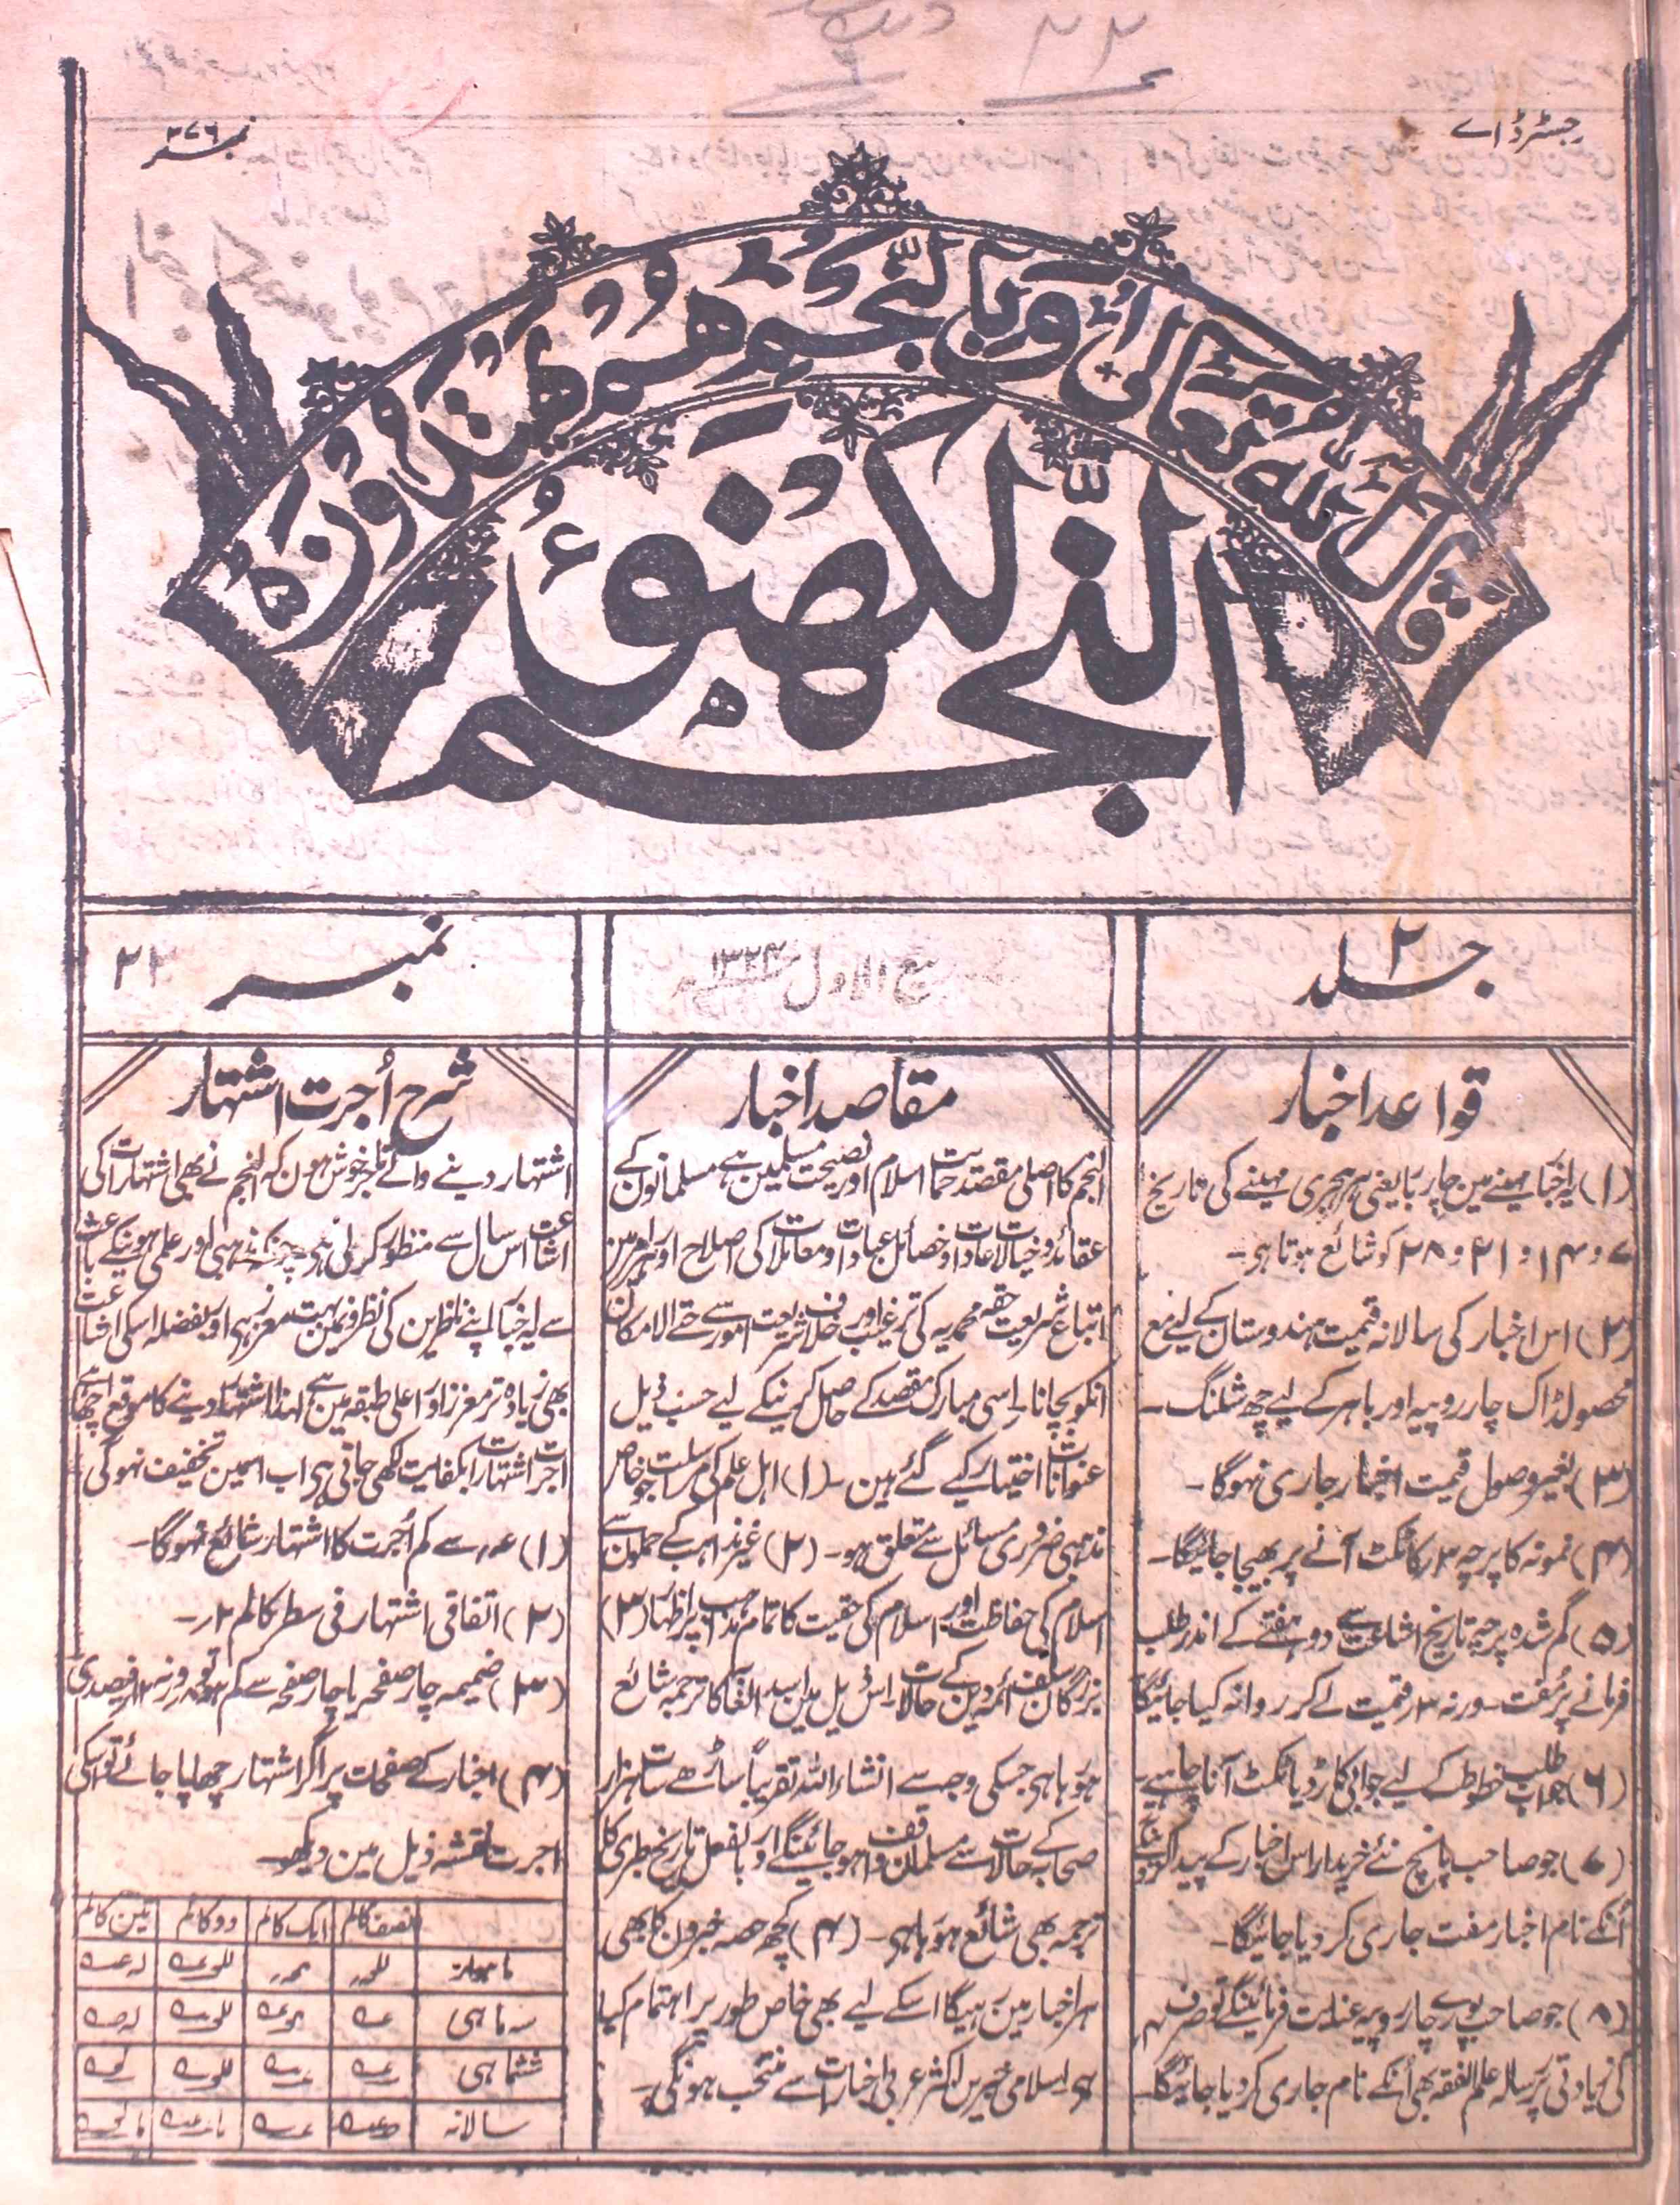 رجسٹرڈ اے
نمبر ۳۷۶
قَالَ اللهُ تَعَالىٰ وَبِالنَّجْمِ هُمْ يَهْتَدُوْنَ ه
النجم لکھنؤ
جلد ۲
ربیع الاول ۱۳۲۴ھ
نمبر ۲۲
قواعد اخبار
(۱) یہ اخبار مہینے مین چار بار یعنی ہر ہجری مہینے کی تاریخ
۷، و ۱۴، و ۲۱، و ۲۸ کو شائع ہوتا ہی۔
(۲) اس اخبار کی سالانہ قیمت ہندوستان کے لیے مع
محصولڈاک چار روپیہ اور باہر کے لیے چھ شلنگ۔
(۳) بغیر وصول قیمت اخبار جاری نہوگا۔
(۴) نمونہ کا پرچہ ۲ر کا ٹکٹ آنے پر بھیجا جائیگا۔
(۵) گم شدہ پرچہ تاریخ اشاعت سے دو ہفتے کے اندر طلب
فرمانے پر مفت۔ ورنہ ۲ر قیمت لے کر روانہ کیا جائیگا
(۶) جواب طلب خطوط کے لیے جوابی کارڈ یا ٹکٹ آنا چاہیے۔
(۷) جو صاحب پانچ نئے خریدار اس اخبار کے پیدا کرینگے
اُنکے نام اخبار مفت جاری کر دیا جائیگا۔
(۸) جو صاحب پورے چار روپیہ عنایت فرمائینگے تو صرف ۴ر
کی زیادتی پر رسالہ علم الفقہ بھی اُنکے نام جاری کر دیا جائیگا۔
مقاصد اخبار
النجم کا اصلی مقصد حمایت اسلام اور نصیحت مسلمین ہے مسلمانون کے
عقائد و خیالات و عادات و خصائل عبادات و معاملات کی اصلاح اور اہم ترین
اتباع شریعت حقہ محمدیہ کی ترغیب اور خلاف شریعت امور سے حتے الامکان
انکو بچانا۔ اِسی مبارک مقصد کے حاصل کرنیکے لیے حسب ذیل
عنوانات اختیار کیے گئے ہین۔ (۱) اہل علم کی مراسلت جو خاص
مذہبی ضروری مسائل سے متعلق ہو۔ (۲) غیر مذاہب کے حملون سے
اسلام کی حفاظت اور اسلام کی حقیت کا تمام مذاہب پر اظہار (۳)
بزرگان سلف ائمہ دین کے حالات۔ اس ذیل مین اسد الغابہ کا ترجمہ شائع
ہو رہا ہی جسکی وجہ سے انشاء اللہ تقریباً ساڑھے سات ہزار
صحابہ کے حالات سے مسلمان واقف ہو جائینگے اور بالفعل تاریخ طبری کا
ترجمہ بھی شائع ہو رہا ہی۔ (۴) کچھ حصہ خبرون کا بھی
ہر اخبار مین رہیگا اسکے لیے بھی خاص طور پر اہتمام کیا
ہی۔ اسلامی خبرین اکثر عربی اخبارات سے منتخب ہونگی۔
شرح اُجرت اشتہار
اشتہار دینے والے تاجر خوش ہون کہ النجم نے بھی اشتہارات کی
اشاعت اس سال سے منظور کر لی ہی چونکہ مذہبی اور علمی ہونیکے باعث
سے یہ اخبار اپنے ناظرین کی نظرون مین بہت معزز ہی اور بفضلہ اسکی اشاعت
بھی زیادہ تر معزز اور اعلی طبقہ مین ہے لہذا اشتہار دینے کا موقع اچھا ہے
اجرت اشتہارات بکفایت لکھی جاتی ہی اب اسمین تخفیف نہوگی
(۱) عہ سے کم اُجرت کا اشتہار شائع نہوگا۔
(۲) اتفاقی اشتہار فی سطر کالم ۲ر۔
(۳) ضمیمہ چار صفحہ یا چار صفحہ سے کم ہو تو ورنہ فیصدی
(۴) اخبار کے صفحات پر اگر اشتہار چھاپا جائے تو اسکی
اجرت نقشہ ذیل مین دیکھو۔
نصف کالم ایک کالم دو کالم تین کالم
ماہوار
سہ ماہی
ششماہی
سالانہ